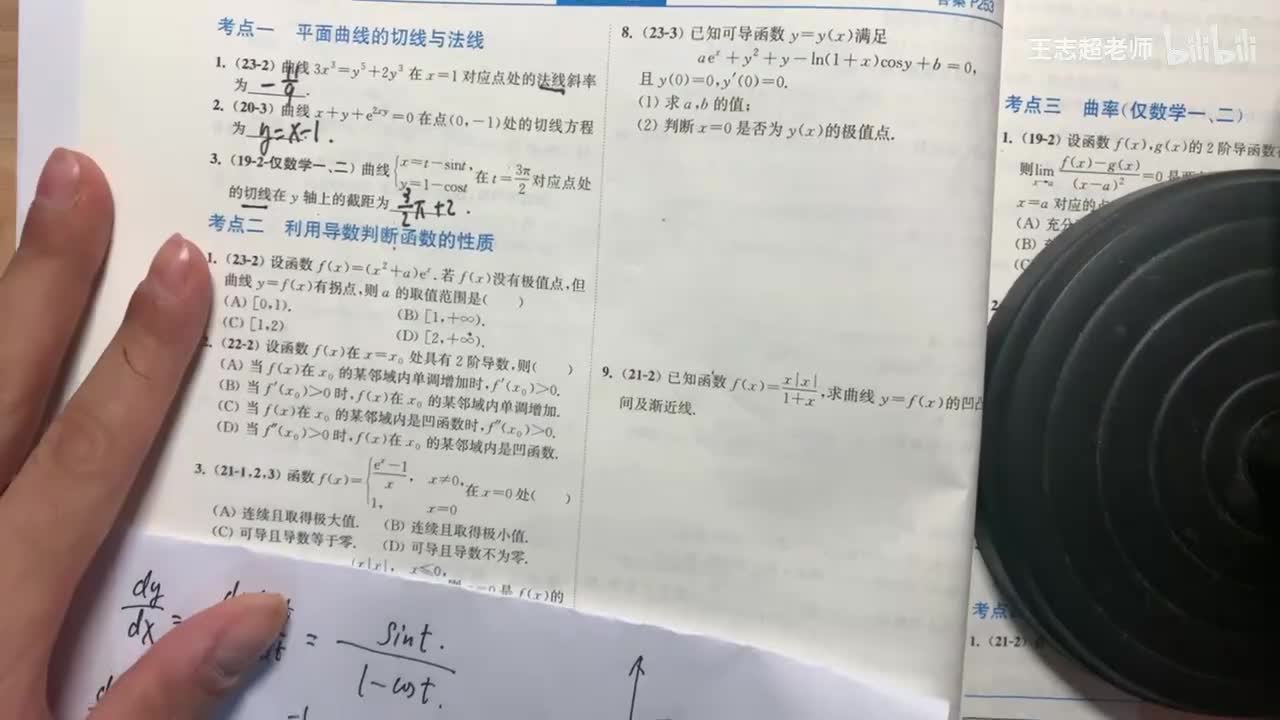 答案 P253
王志超老师 bilibili
考点一 平面曲线的切线与法线
1. (23-2) 曲线 3x³=y⁵+2y³ 在 x=1 对应点处的法线斜率
为 -11/9 .
2. (20-3) 曲线 x+y+e^{2xy}=0 在点(0,-1)处的切线方程
为 y=x-1 .
3. (19-2-仅数学一、二) 曲线 {x=t-sint, y=1-cost 在 t=3π/2 对应点处
的切线在 y 轴上的截距为 3/2π+2 .
考点二 利用导数判断函数的性质
1. (23-2) 设函数 f(x)=(x²+a)eˣ. 若 f(x)没有极值点,但
曲线 y=f(x)有拐点,则 a 的取值范围是( )
(A) [0,1). (B) [1,+∞).
(C) [1,2) (D) [2,+∞).
2. (22-2) 设函数 f(x)在 x=x₀ 处具有 2 阶导数,则( )
(A) 当 f(x)在 x₀ 的某邻域内单调增加时,f′(x₀)>0.
(B) 当 f′(x₀)>0 时,f(x)在 x₀ 的某邻域内单调增加.
(C) 当 f(x)在 x₀ 的某邻域内是凹函数时,f″(x₀)>0.
(D) 当 f″(x₀)>0 时,f(x)在 x₀ 的某邻域内是凹函数.
3. (21-1,2,3) 函数 f(x)={(eˣ-1)/x, x≠0, 1, x=0 在 x=0 处( )
(A) 连续且取得极大值. (B) 连续且取得极小值.
(C) 可导且导数等于零. (D) 可导且导数不为零.
x|x|, x≤0,
是 f(x)的
dy/dx = = sint./1-cost.
8. (23-3) 已知可导函数 y=y(x)满足
aeˣ+y²+y-ln(1+x)cosy+b=0,
且 y(0)=0,y′(0)=0.
(1) 求 a,b 的值;
(2) 判断 x=0 是否为 y(x)的极值点.
9. (21-2) 已知函数 f(x)=x|x|/(1+x),求曲线 y=f(x)的凹凸
间及渐近线.
考点三 曲率(仅数学一、二)
1. (19-2) 设函数 f(x),g(x)的 2 阶导函数在
则 lim x→a (f(x)-g(x))/(x-a)²=0 是
x=a 对应的点
(A) 充分
(B)
(C)
2.
考点
1. (21-2)